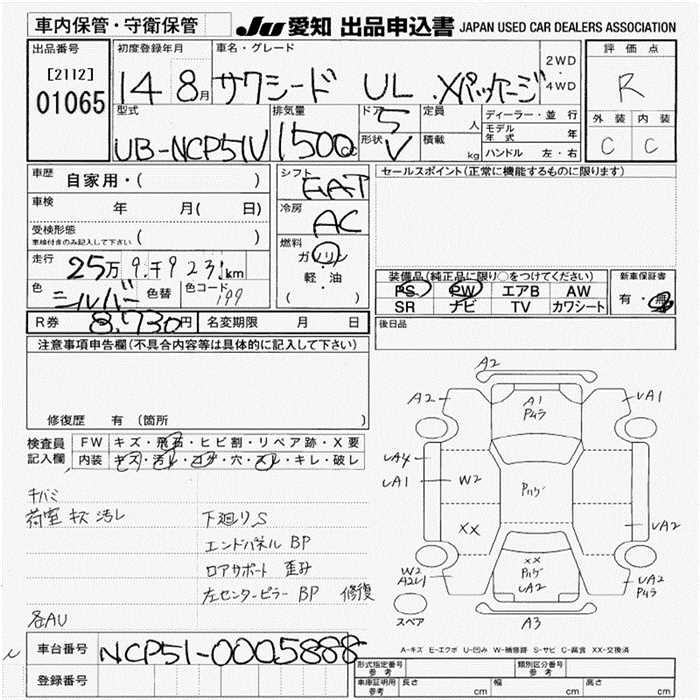 車内保管・守衛保管 JU 愛知 出品申込書 JAPAN USED CAR DEALERS ASSOCIATION
出品番号 初度登録年月 車名・グレード 評価点
[2112] 2WD
01065 14 8月 サクシード UL .Xパッケージ ・ R
4WD
型式 排気量 ドア 5 定員 人 ディーラー・並行 外装 内装
UB-NCP51V 1500cc 形状 V 積載 kg モデル年式 年 C C
ハンドル 左・右
車歴 自家用・( ) シフト FAT セールスポイント(正常に機能するものに限ります)
車検 年 月( 日) 冷房 AC
受検形態 ( )
車検付きのみ記入して下さい
燃料 ガソリン
走行 25万9千923km 軽・油
( )
色 シルバー 色替 色コード 199
装備品(純正品に限り○をつけてください) 新車保証書
PS PW エアB AW 有・無
SR ナビ TV カワシート
R券 8,730円 名変期限 月 日 後日品
注意事項申告欄(不具合内容等は具体的に記入して下さい)
修復歴 有 (箇所 )
検査員記入欄 FW キズ・飛石・ヒビ割・リペア跡・X要
内装 キズ・汚レ・コゲ・穴・スレ・キレ・破レ
キバミ
荷室 キズ 汚レ 下廻りS
エンドパネル BP
ロアサポート 歪み
左センターピラー BP 修復
各AU
A2
A2 A1 UA1
Pムラ
UA4
UA1 W2 Pハゲ
XX UA2
XX
W2 Pハゲ UA2
A2U1 UA2 Pムラ
スペア A3
A-キズ E-エクボ U-凹み W-補修跡 S-サビ C-腐食 XX-交換済
車台番号 NCP51-0005888
登録番号
形式指定番号 参考 類別区分番号 参考
車庫証明用 参考 長さ cm 幅 cm 高さ cm